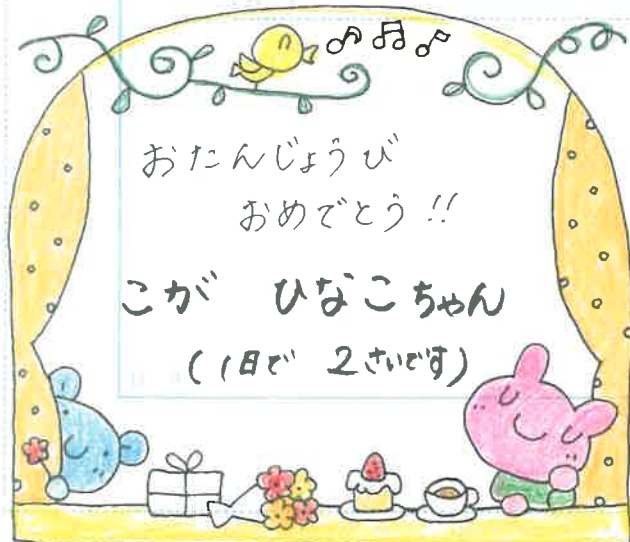 おたんじょうび
おめでとう!!
こが ひなこちゃん
(1日で 2さいです)